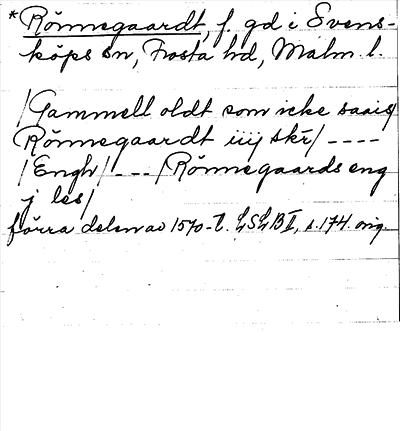 *Rönnegaardt, f. gd i Svens-
köps sn, Frosta hd, Malm. l.
/Gammell oldt som icke saais/
Rönnegaardt iiij skr/ ----
/Engh/ --- /Rönnegaards eng
j les/
förra delen av 1570-t. LSLB II, s. 174. orig.